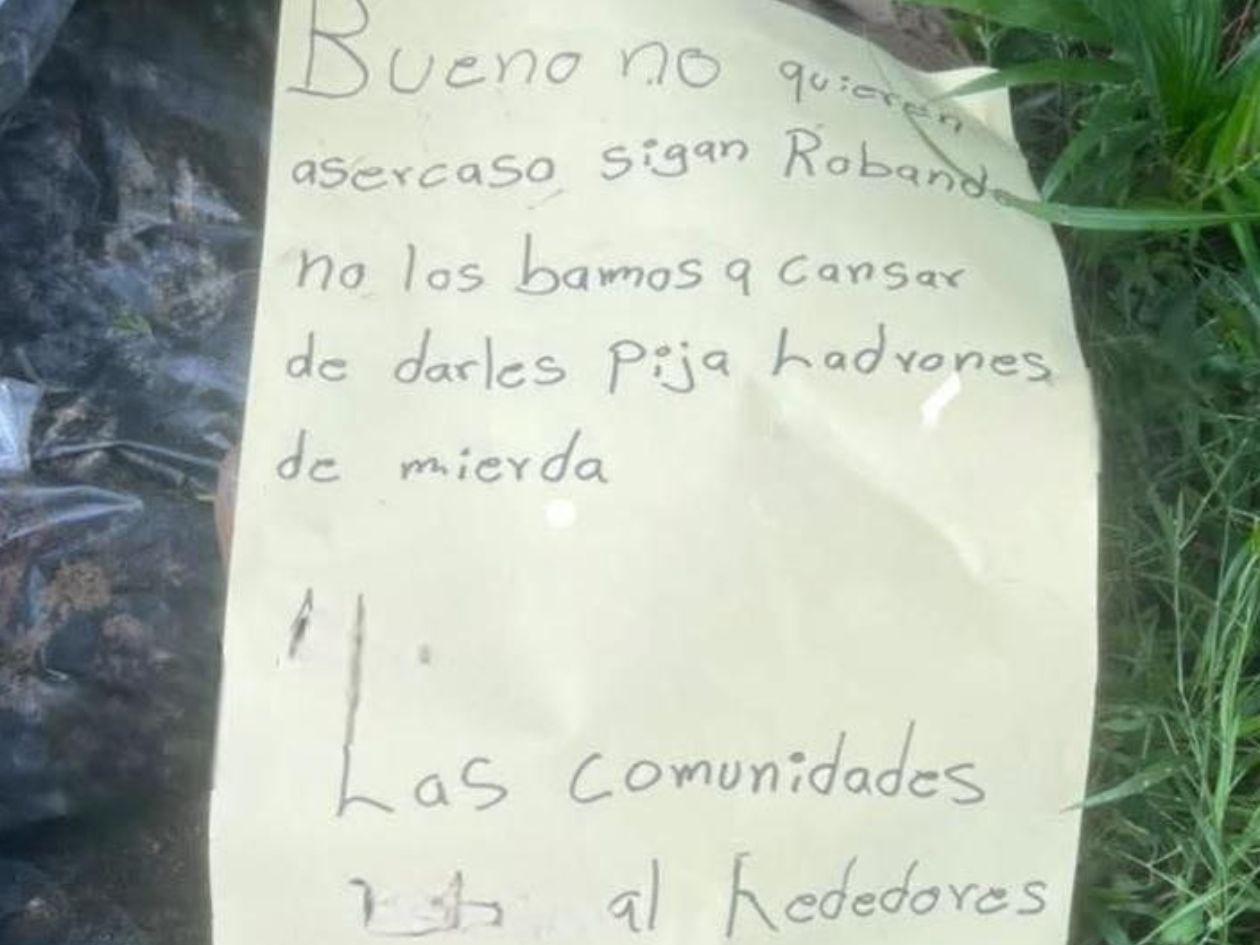 Bueno no quieren
asercaso sigan Robando
no los bamos a cansar
de darles pija Ladrones
de mierda
Las comunidades
al Rededores